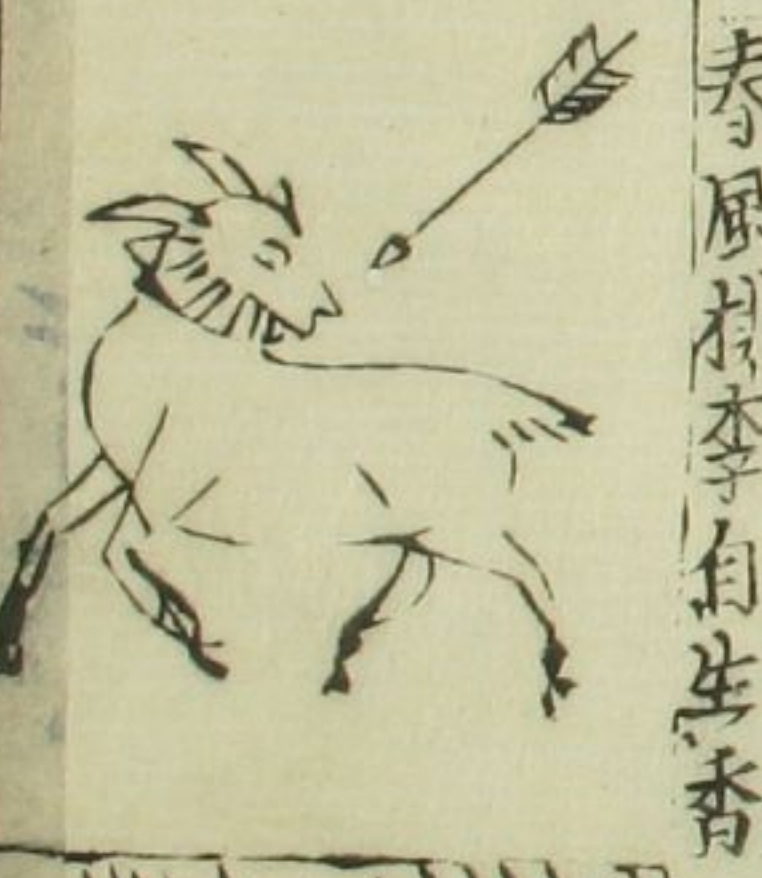 春風桃李自生香